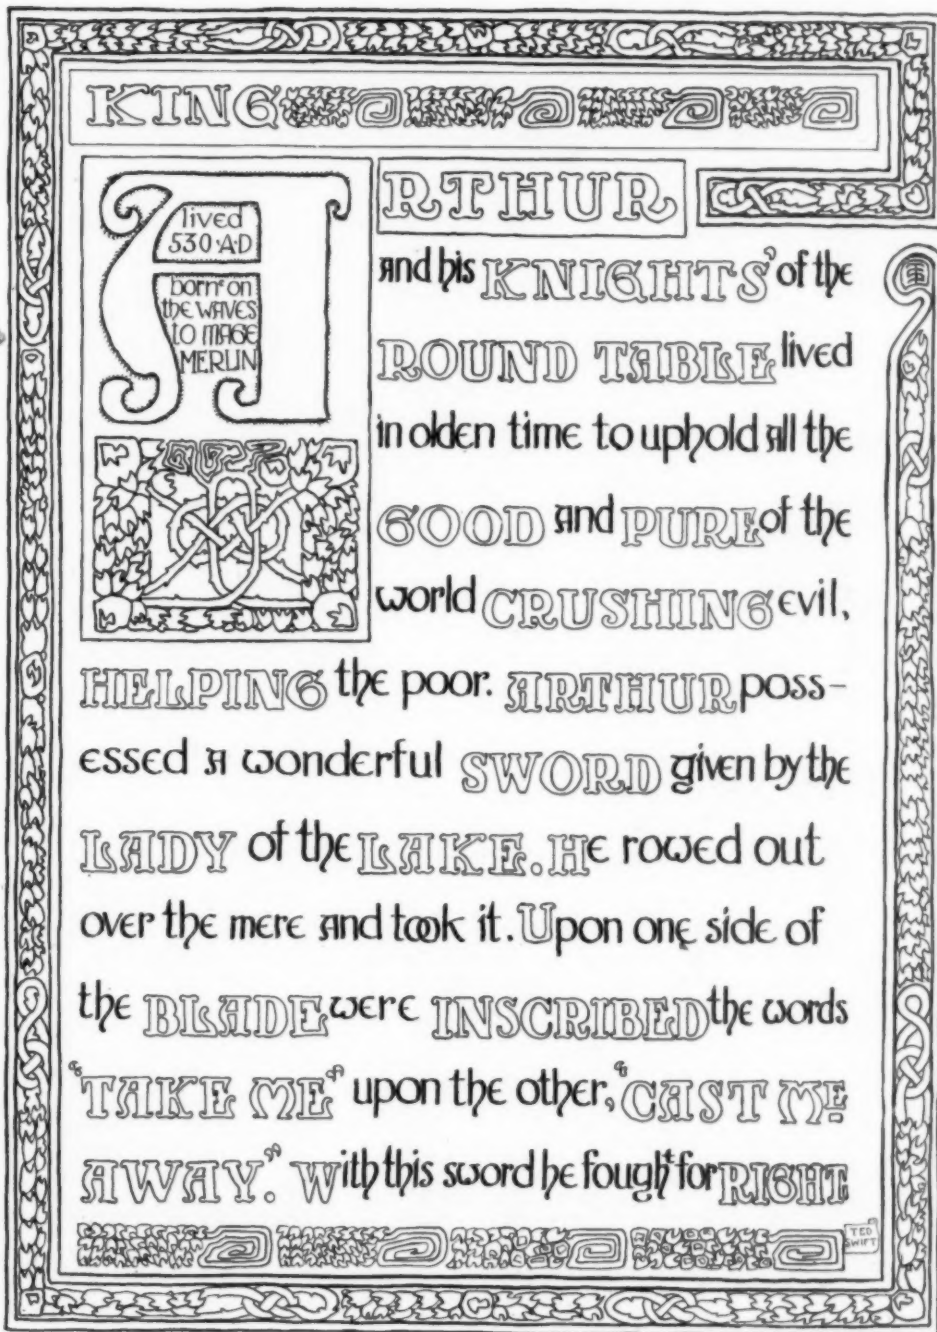 KING
ARTHUR
lived
530·A·D
borne on
the WAVES
to MAGE
MERLIN
and his KNIGHTS' of the
ROUND TABLE lived
in olden time to uphold all the
GOOD and PURE of the
world CRUSHING evil,
HELPING the poor. ARTHUR poss-
essed a wonderful SWORD given by the
LADY of the LAKE. He rowed out
over the mere and took it. Upon one side of
the BLADE were INSCRIBED the words
"TAKE ME" upon the other, "CAST ME
AWAY." With this sword he fought for RIGHT
TED
SWIFT